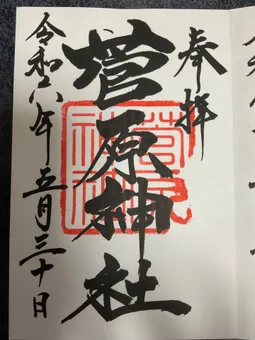 奉拝
菅原神社
令和八年五月三十日